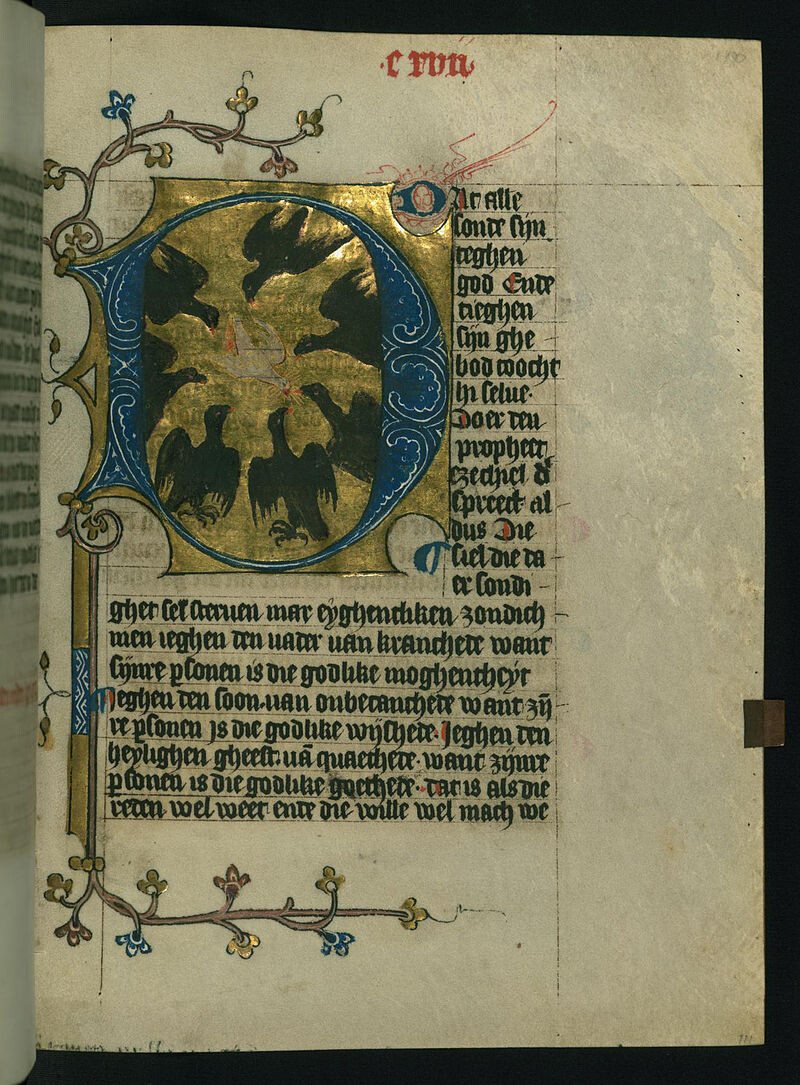 ·c xvii·
Dat alle
sonde sijn
teghen
god Ende
tieghen
sijn ghe
bod toocht
hi selue·
Doer den
propheet
ezechiel d
spreect al
dus Die
siel die da
er sondi
ghet sel steruen mar eyghentliken zondich
men ieghen den uader uan kranchede want
sijnre psonen is die godlike moghentheyt
Jeghen den soon uan onbecanthede want zij
re psonen is die godlike wijshede· Jeghen den
heylighen gheest uā quaethede· want zijnre
psonen is die godlike goethede· dat is als die
reden wel weet ende die wille wel mach we